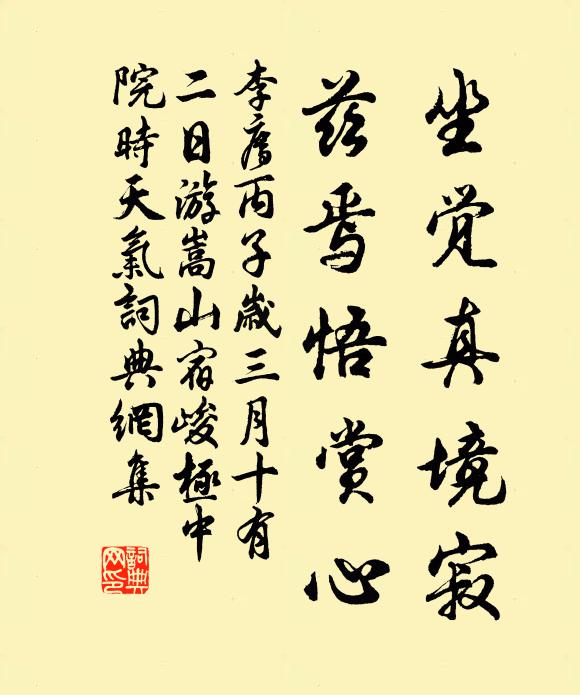 坐觉真境寂
兹焉悟赏心
李廌丙子岁三月十有
二日游嵩山宿峻極中
院時天氣詞典網集
詞典
网印